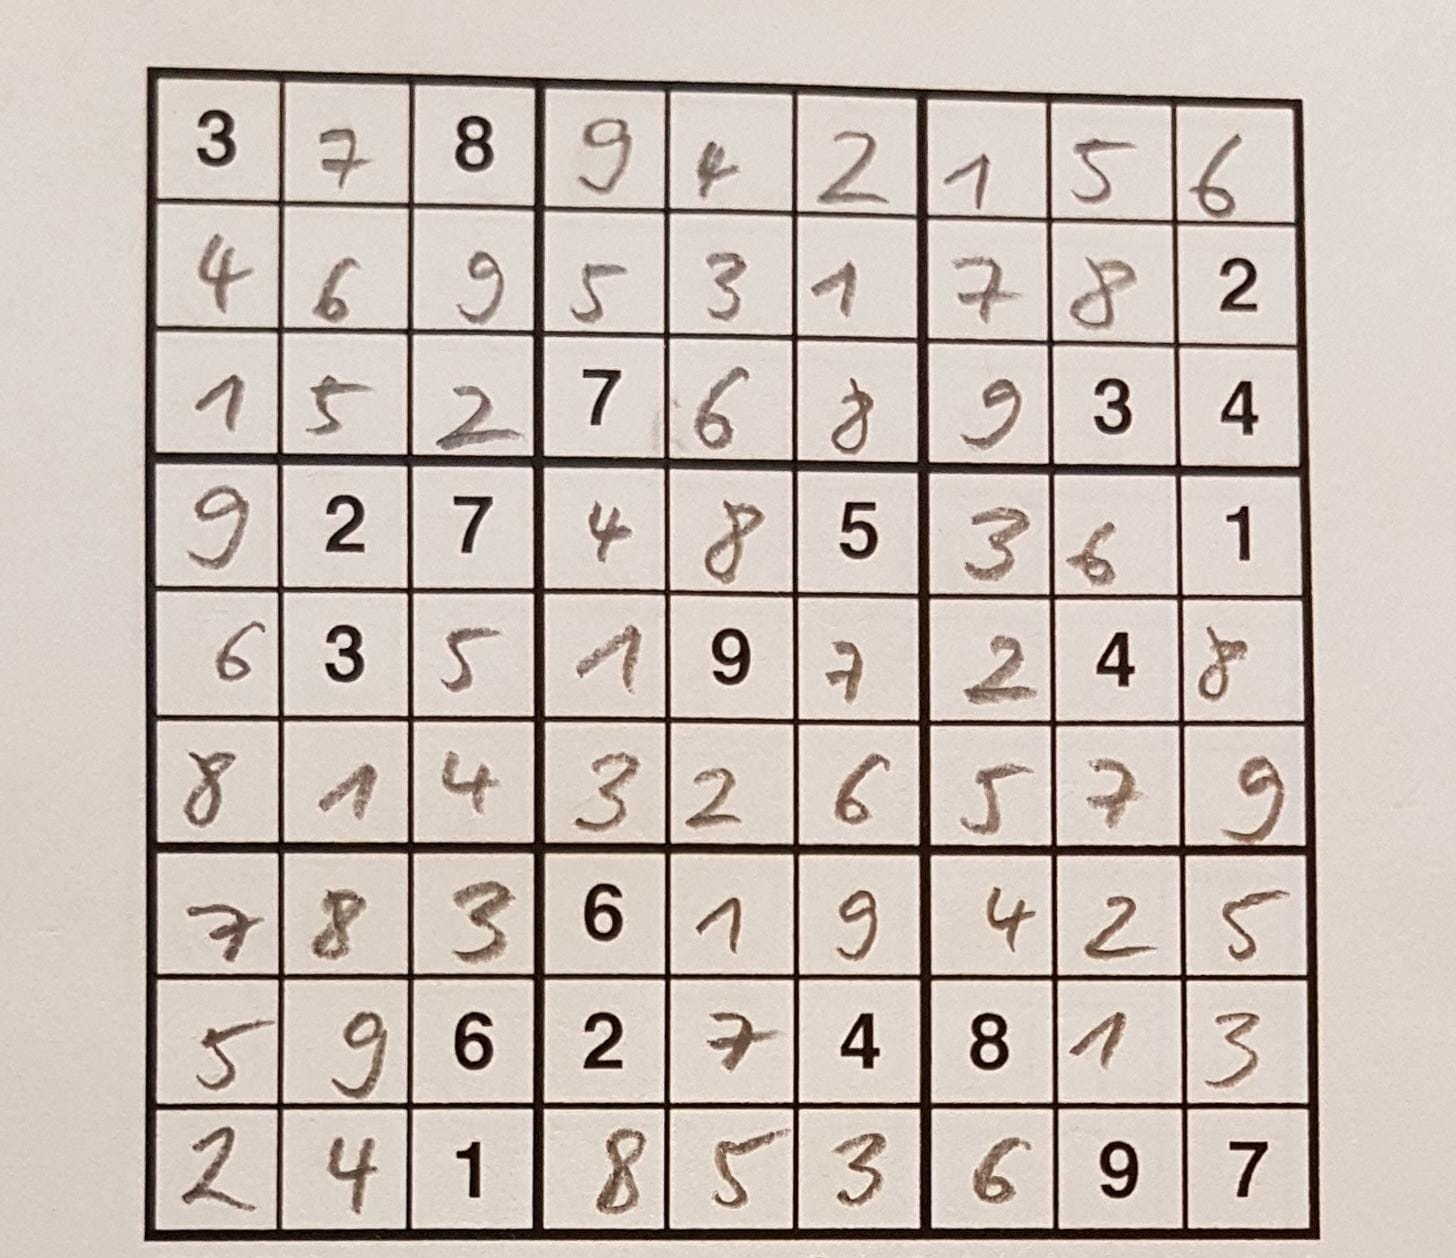 3 7 8 9 4 2 1 5 6
4 6 9 5 3 1 7 8 2
1 5 2 7 6 8 9 3 4
9 2 7 4 8 5 3 6 1
6 3 5 1 9 7 2 4 8
8 1 4 3 2 6 5 7 9
7 8 3 6 1 9 4 2 5
5 9 6 2 7 4 8 1 3
2 4 1 8 5 3 6 9 7